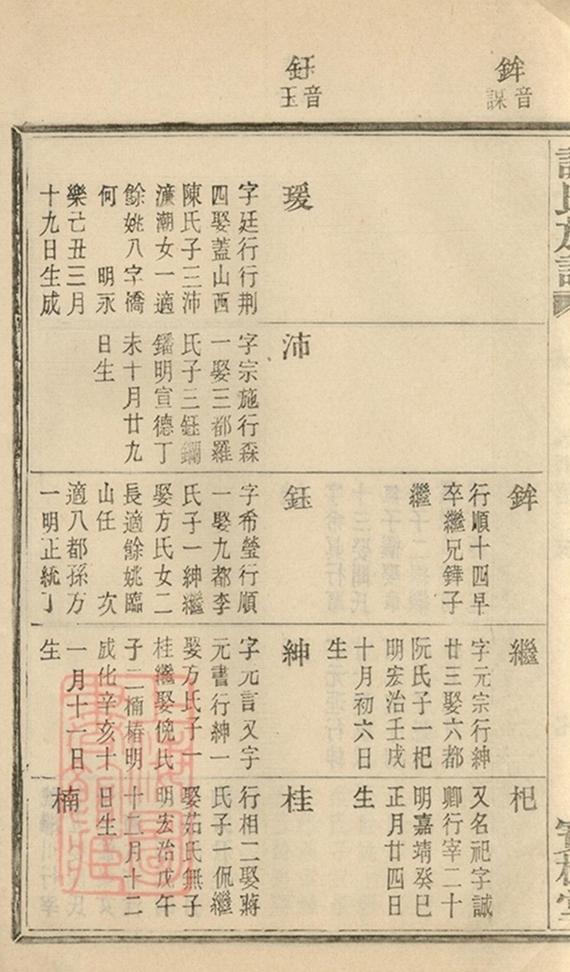 鉾
音
謀
鈺
音
玉
瑗
字廷行行荆
四娶蓋山西
陳氏子三沛
潼潮女一適
餘姚八字橋
何 明永
樂己丑三月
十九日生成
沛
字宗施行森
一娶三都羅
氏子三鈺鐦
鐇明宣德丁
未十月廿九
日生
鉾
行順十四早
卒繼兄鏵子
繼
鈺
字希瑩行順
一娶九都李
氏子一紳繼
娶方氏女二
長適餘姚臨
山任 次
適八都孫方
一明正統丁
繼
字元宗行紳
廿三娶六都
阮氏子一杞
明宏治壬戌
十月初六日
生
紳
字元言又字
元書行紳一
娶方氏子一
桂繼娶倪氏
子二楠椿明
成化辛亥十
一月十一日
生
杞
又名祀字誠
卿行宰二十
明嘉靖癸巳
正月廿四日
生
桂
行相二娶蔣
氏子一侃繼
娶茹氏無子
明宏治戊午
十二月十二
日生
楠